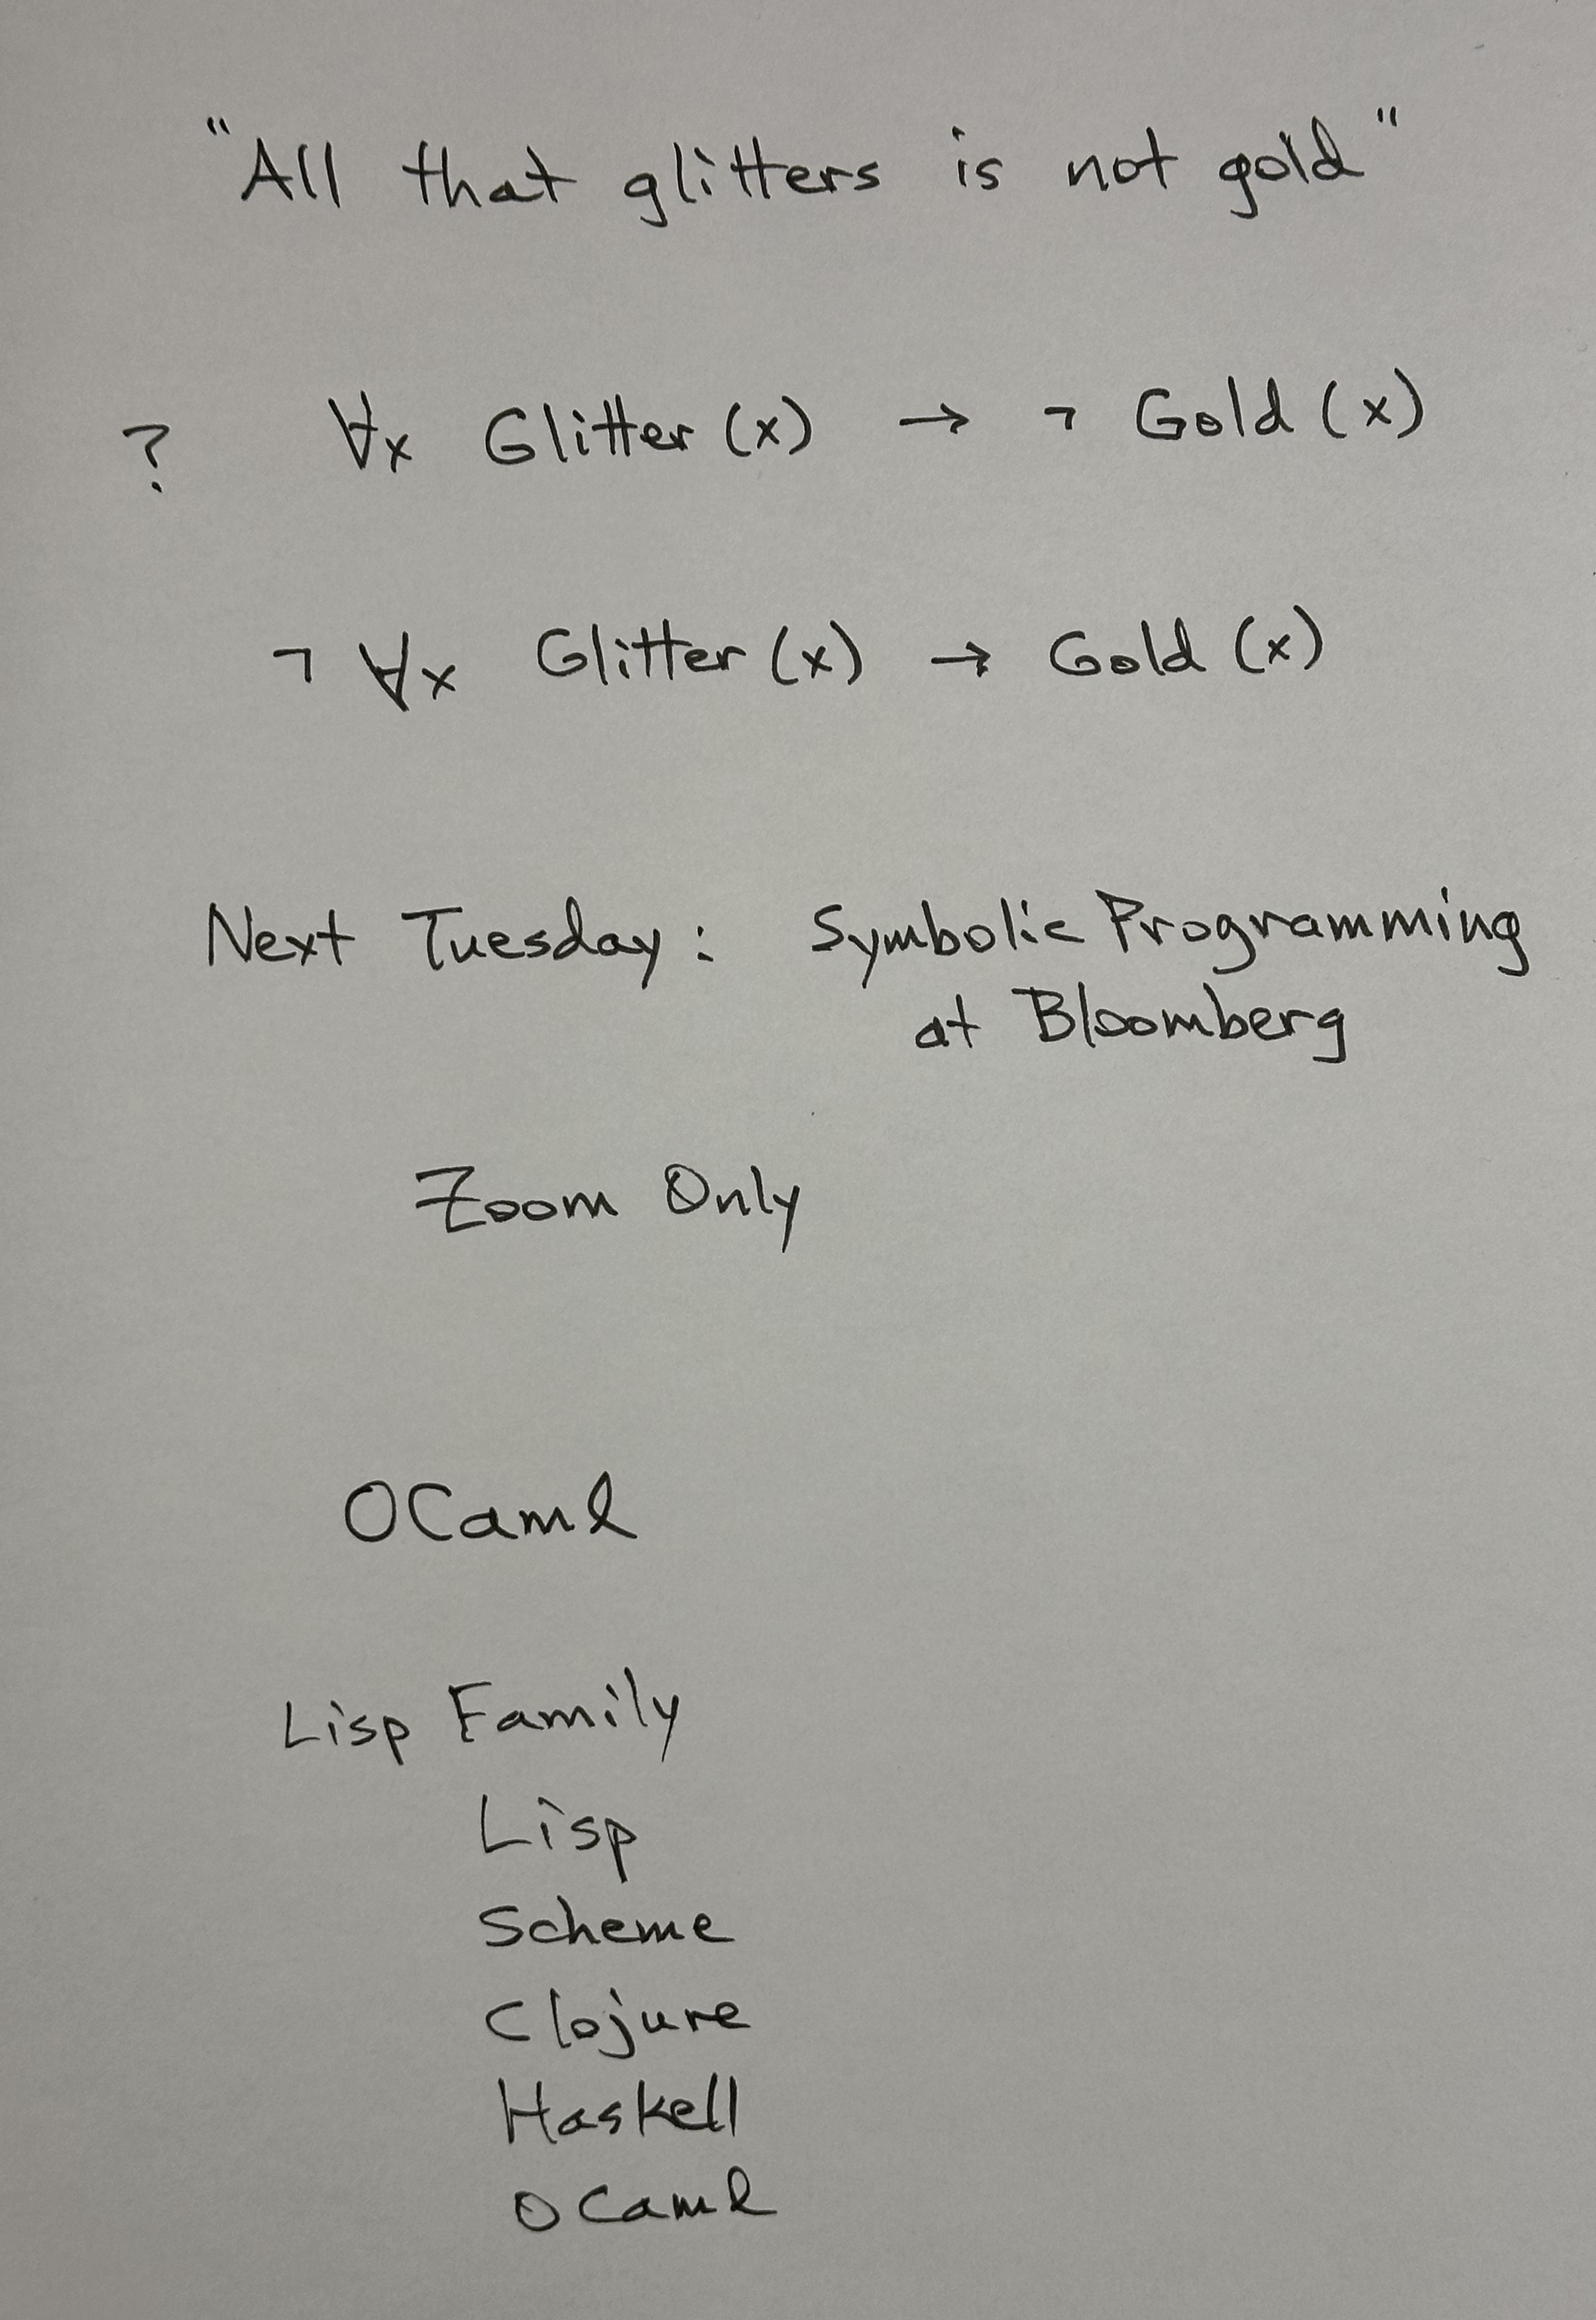 "All that glitters is not gold"
? ∀x Glitter (x) → ¬ Gold (x)
¬ ∀x Glitter (x) → Gold (x)
Next Tuesday: Symbolic Programming
at Bloomberg
Zoom Only
OCaml
Lisp Family
Lisp
Scheme
Clojure
Haskell
OCaml